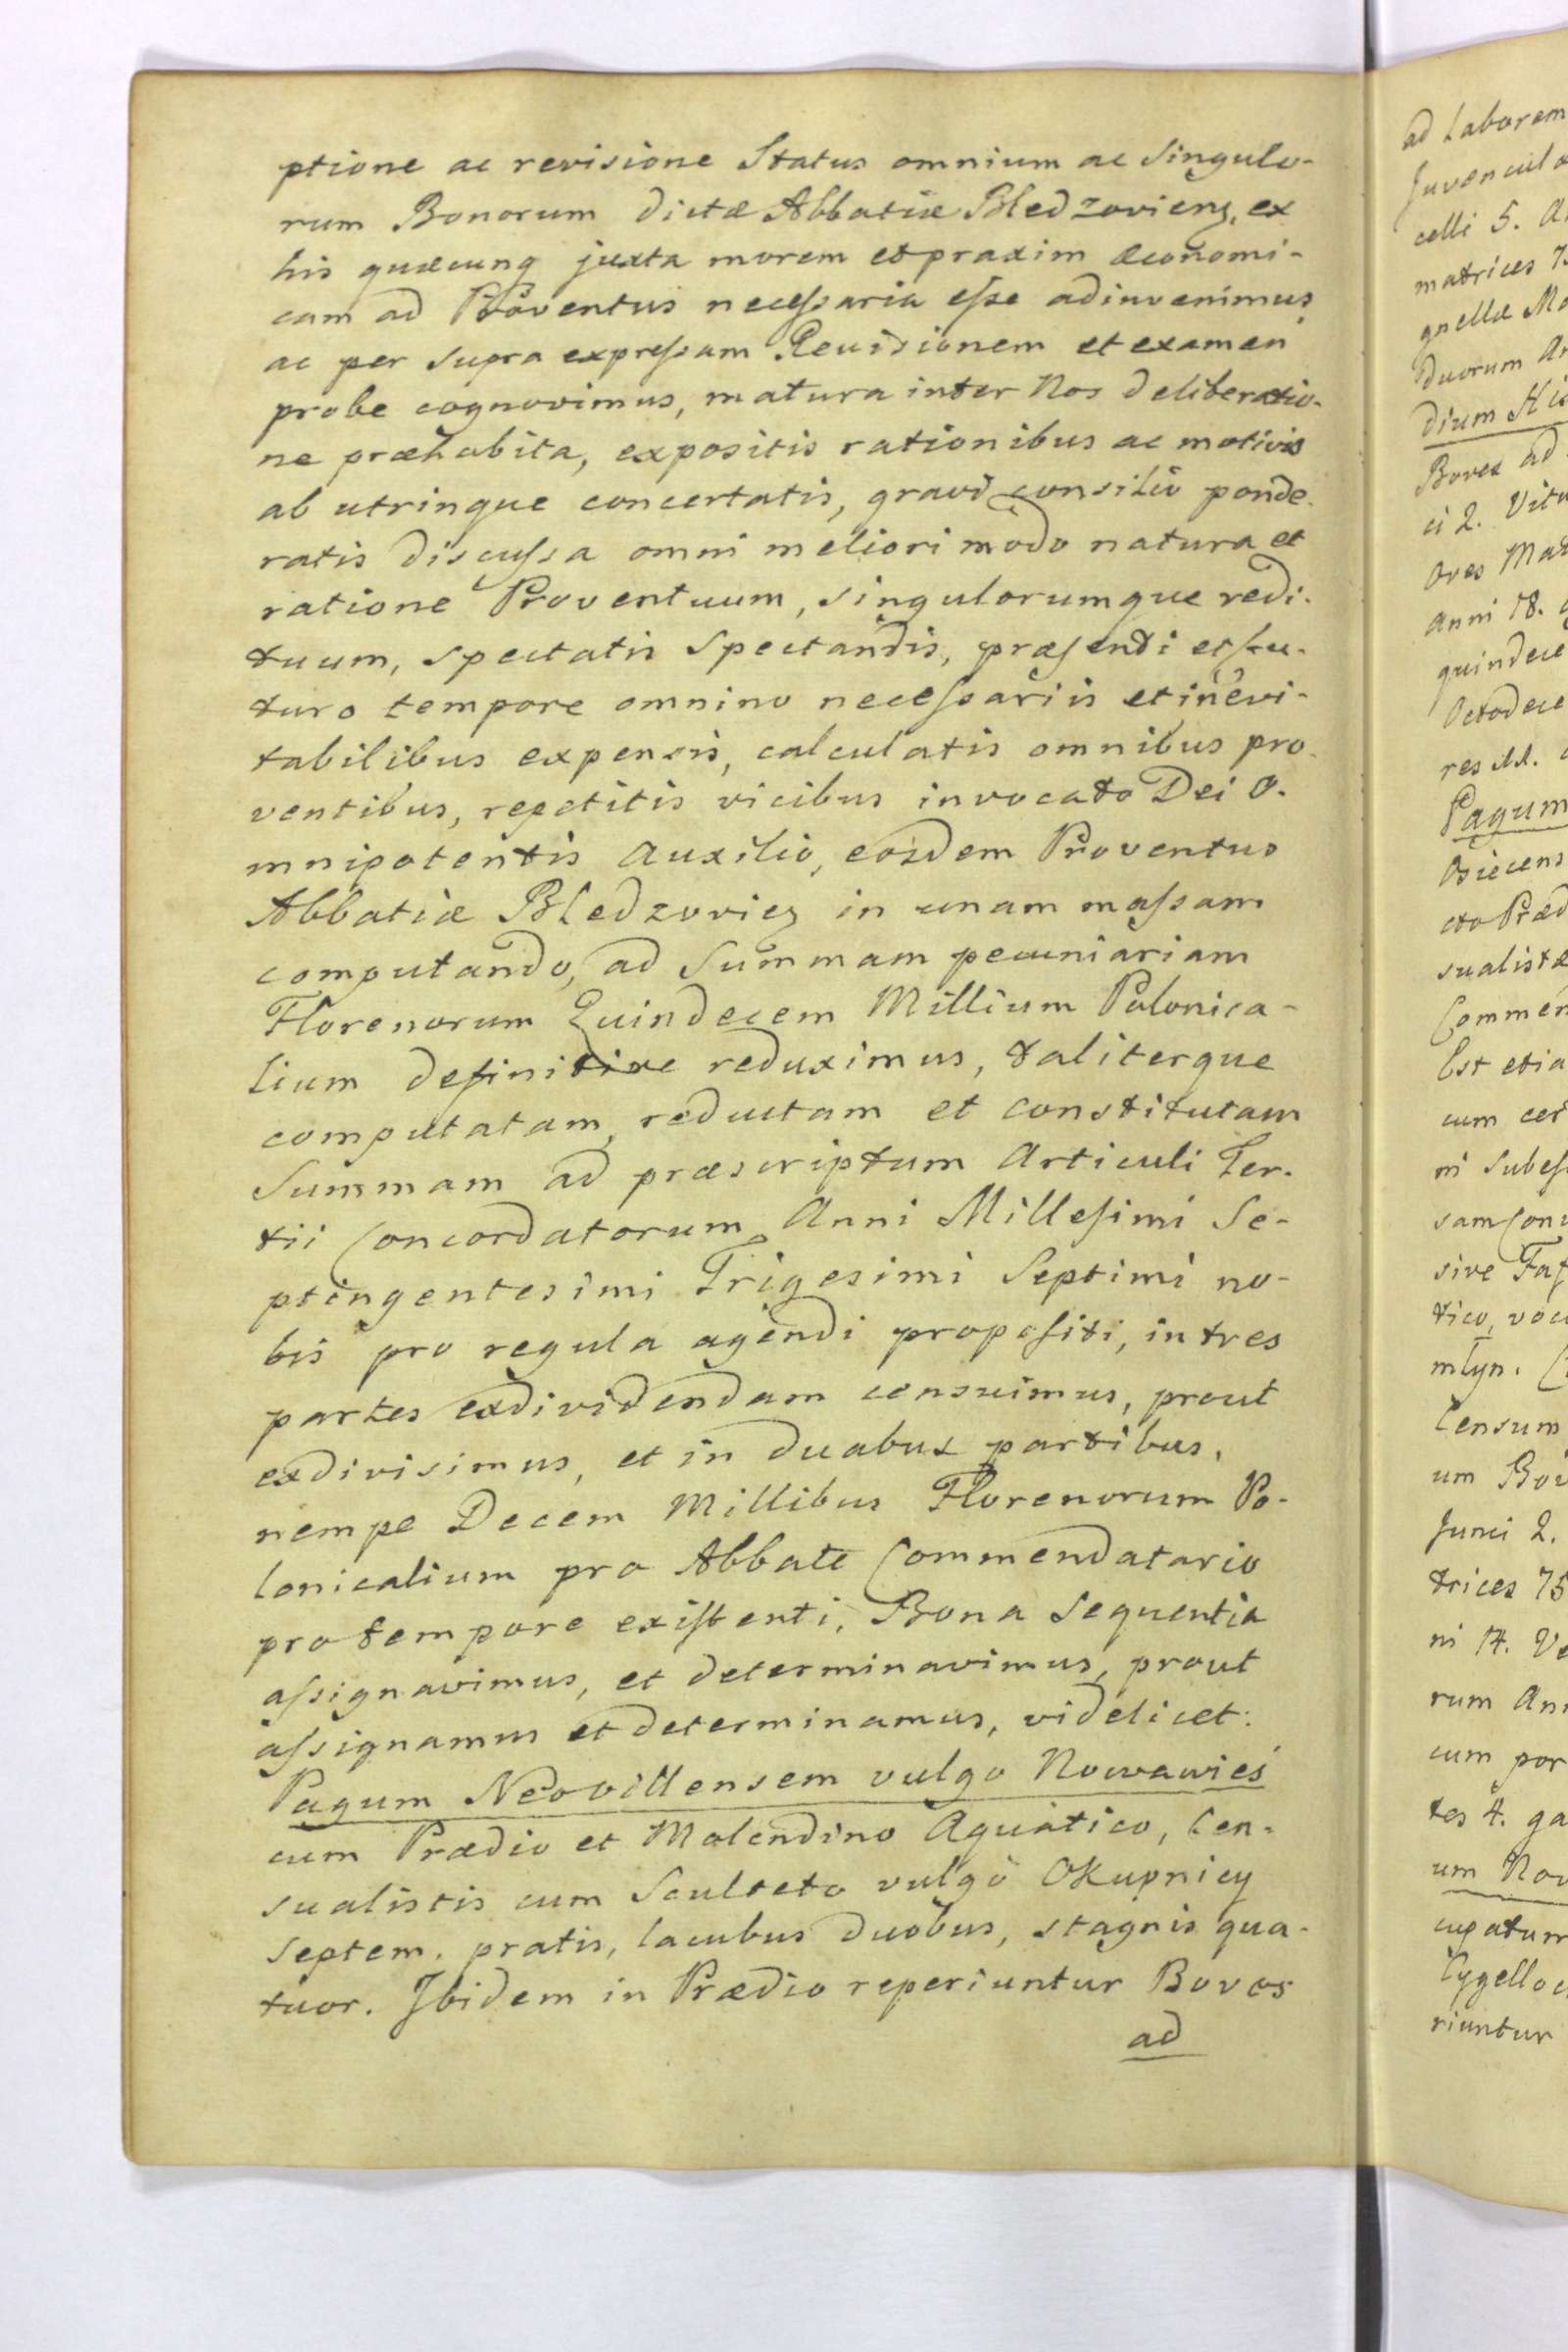 ptione ac revisione Status omnium ac Singulo-
rum Bonorum dictæ Abbatiæ Bledzovienz, ex
his quæcunq juxta morem et praxim œconomi-
cam ad Proventus necessaria esse adinvenimus
ac per Supra expressam Revisionem et examen
probe cognovimus, matura inter Nos deliberatio-
ne præhabita, expositis rationibus ac motivis
ab utrinque concertatis, gravi consilio ponde-
ratis discussa omni meliori modo natura et
ratione Proventuum, singulorumque redi-
tuum, Spectatis Spectandis, præsenti et fu-
turo tempore omnino necessariis et inevi-
tabilibus expensis, calculatis omnibus pro-
ventibus, repetitis vicibus invocato Dei O-
mnipotentis Auxilio, eosdem Proventus
Abbatiæ Bledzoviez in unam massam
computando, ad Summam pecuniariam
Florenorum Quindecem Millium Polonica-
lium definitive reduximus, taliterque
computatam, reductam et constitutam
Summam ad præscriptum Articuli Ter-
tii Concordatorum Anni Millesimi Se-
ptingentesimi Trigesimi Septimi no-
bis pro regula agendi propositi, in tres
partes exdividendam censuimus, prout
exdivisimus, et in duabus partibus,
nempe Decem Millibus Florenorum Po-
lonicalium pro Abbate Commendatario
pro tempore existenti, Bona Sequentia
assignavimus, et determinavimus, prout
assignamus et determinamus, videlicet:
Pagum Neovillensem vulgo Nowawieś
cum Prædio et Molendino Aquatico, Cen-
sualistis cum Sculteto vulgo Okupnicy
septem, pratis, lacubus duobus, stagnis qua-
tuor. Ibidem in Prædio reperiuntur Boves
ad
ad Laborem
celli 5.
matrices
gnellæ
duorum
dium
Boves ad
ci 2.
Oves
Anni 18.
quindece
Octodece
res
Pagum
Osiecens
cto Præd
sualistæ
Commen
Est etia
cum cer
ni Subes
sam Conv
sive
tico, voc
młyn.
Censum
um Bov
Junci 2.
trices 75
ni 14. Ve
rum Ann
cum por
tes 4. ga
um Nov
cupatum
riuntur